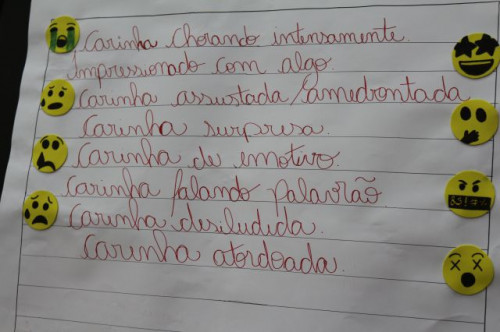 Carinha chorando intensamente.
Impressionado com algo.
Carinha assustada/amedrontada
Carinha surpresa.
Carinha de emotivo.
Carinha falando palavrão
Carinha desiludida.
Carinha atordoada.